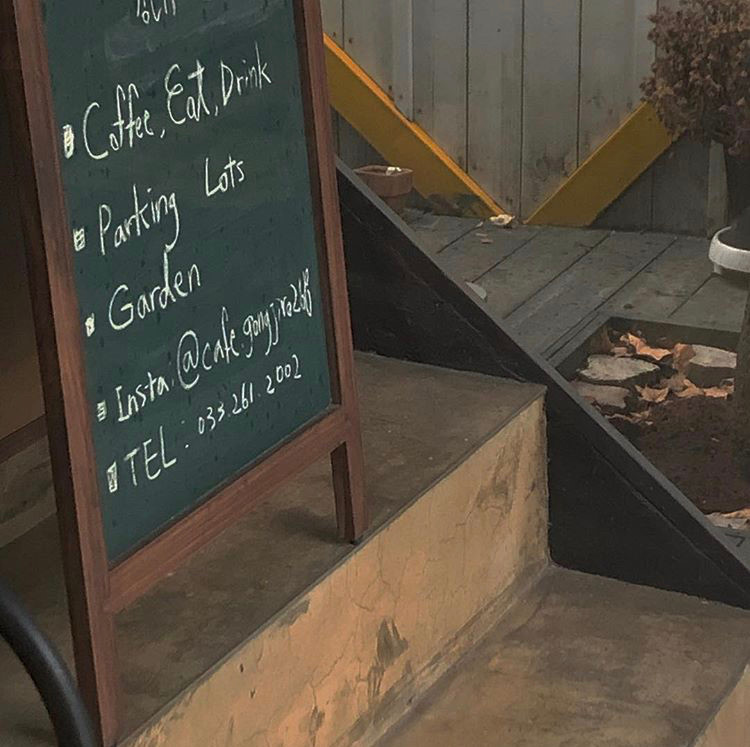 Coffee, Eat, Drink
Parking Lots
Garden
Insta. @cafe.gongjiro268
TEL : 033.261.2002